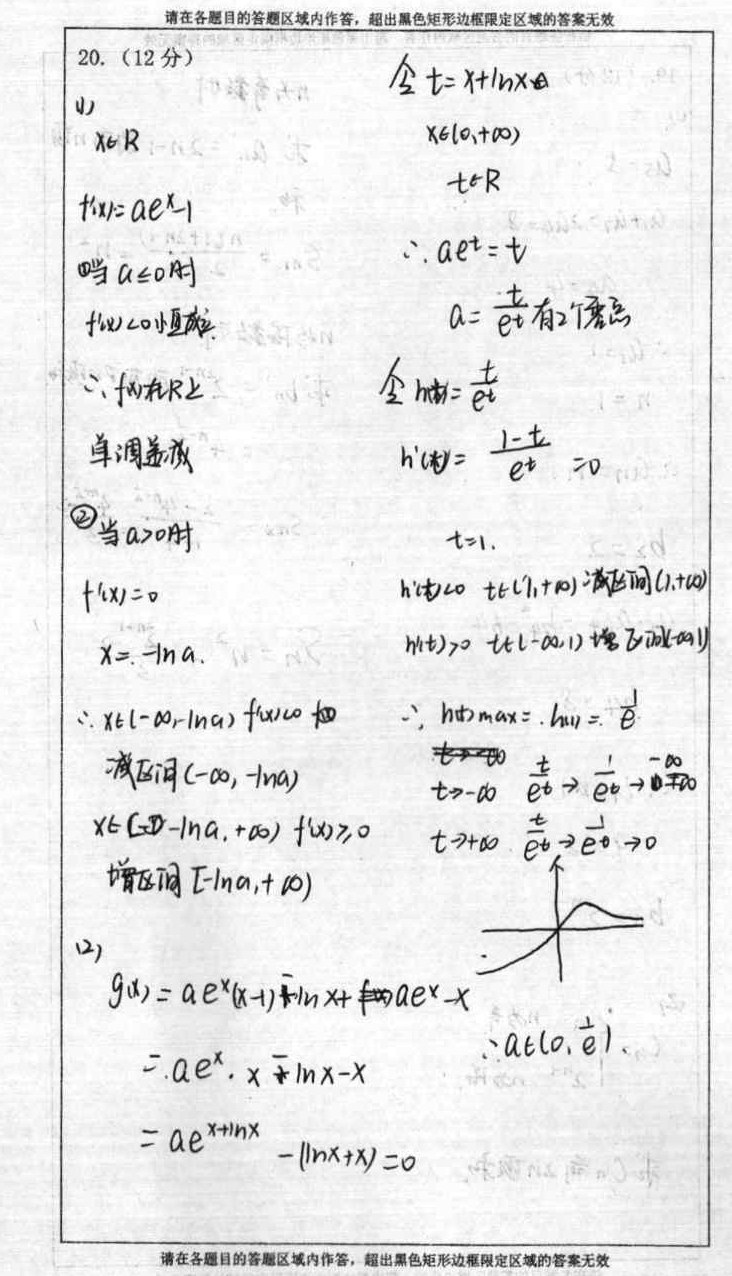 请在各题目的答题区域内作答，超出黑色矩形边框限定区域的答案无效
20.（12分）
(1)
x∈R
f'(x)=ae^x-1
①当a≤0时
f'(x)<0恒成立
∴f(x)在R上
单调递减
②当a>0时
f'(x)=0
x=-lna.
∴x∈(-∞,-lna) f'(x)<0
减区间(-∞,-lna)
x∈[-lna,+∞) f'(x)≥0
增区间[-lna,+∞)
(2)
g(x)=ae^x(x-1)-lnx+ae^x-x
=ae^x·x-lnx-x
=ae^{x+lnx}-(lnx+x)=0
令t=x+lnx
x∈(0,+∞)
t∈R
∴ae^t=t
a=t/e^t有2个零点
令h(t)=t/e^t
h'(t)=(1-t)/e^t=0
t=1.
h'(t)<0 t∈(1,+∞) 减区间(1,+∞)
h'(t)>0 t∈(-∞,1) 增区间(-∞,1)
∴h(t)max=h(1)=1/e
t→-∞ t/e^t→1/e^t→-∞
t→+∞ t/e^t→1/e^t→0
∴a∈(0,1/e)
请在各题目的答题区域内作答，超出黑色矩形边框限定区域的答案无效